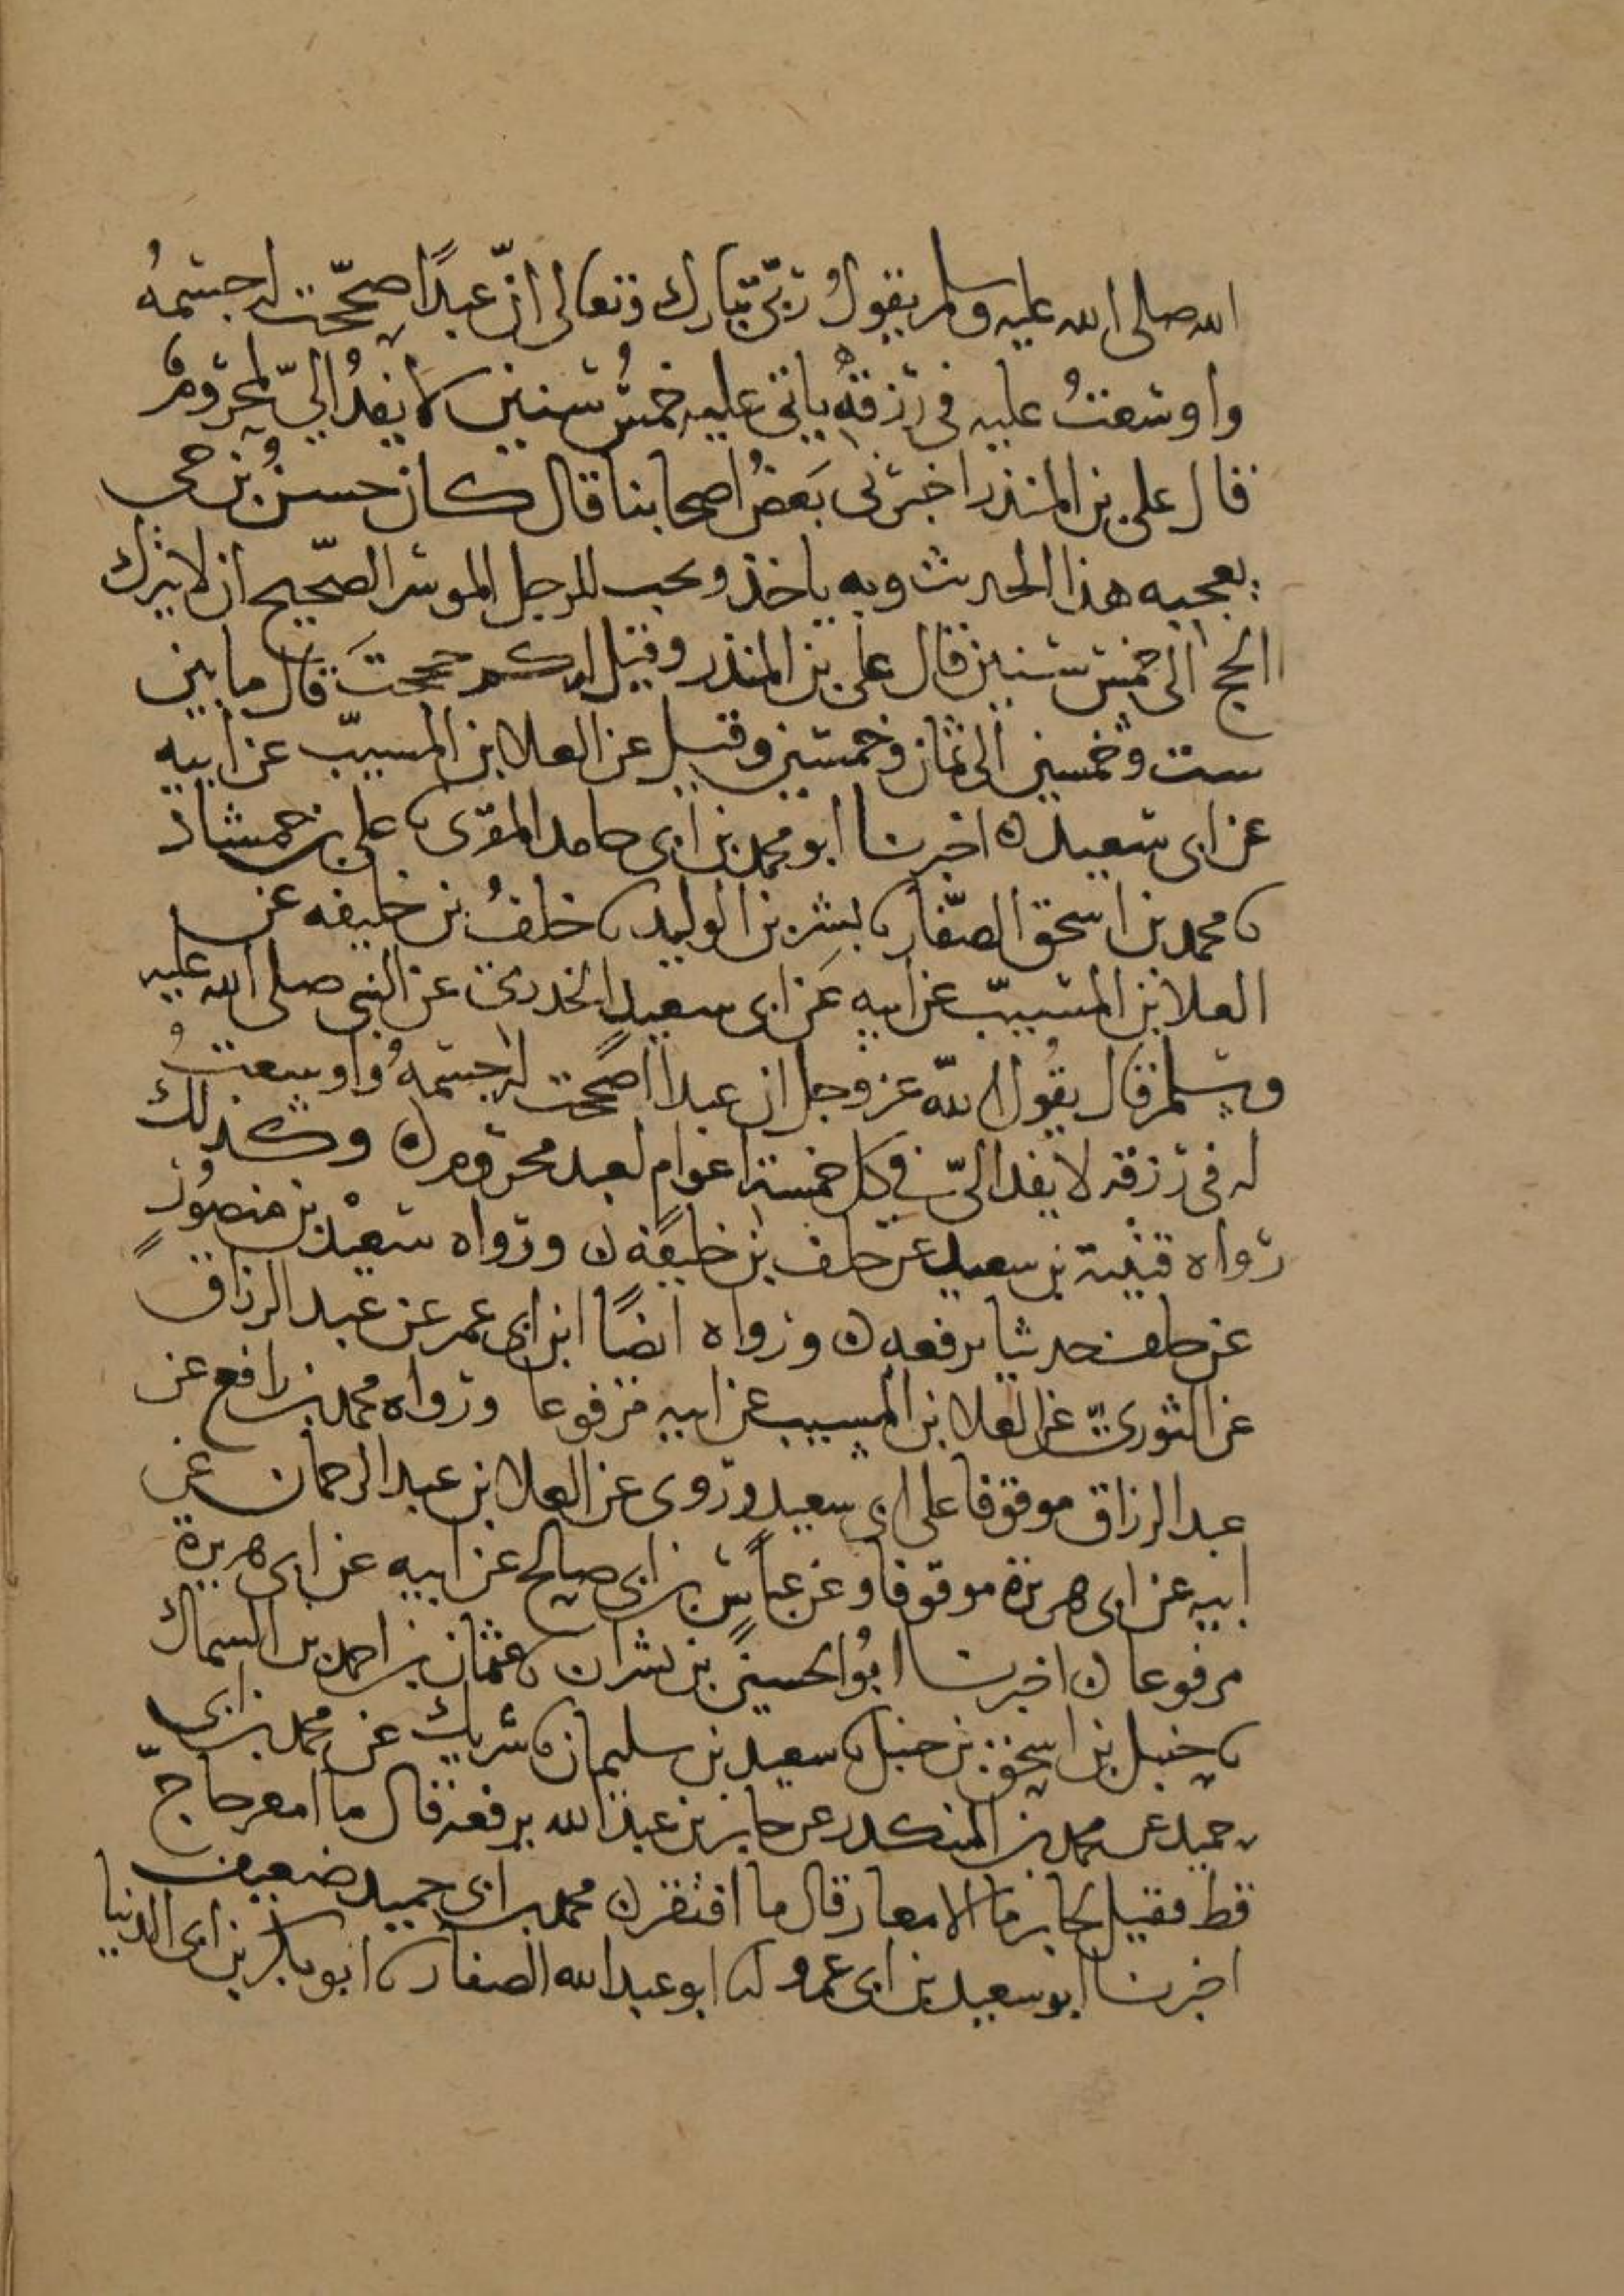 الله صلى الله عليه وسلم يقول ربي تبارك وتعالى انّ عبدًا صحّحت له جسمهُ
واوسعتُ عليه في رزقه ياتي عليه خمسُ سنين لا يفدُ اليّ لمحروم
قال علي بن المنذر اخبرني بَعضُ اصحابنا قال كان حسنُ بن حي
يعجبه هذا الحديث وبه ياخذ ويحب للرجل الموسر الصحيح ان لا يترك
الحج الى خمس سنين قال علي بن المنذر وقيل له كم حججتَ قال ما بين
ست وخمسين الى ثمان وخمسين وقيل عن العلا بن المسيّب عن ابيه
عن ابي سعيد ه اخبرنا ابو محمد بن ابي حامد المقري نا علي بن حمشاذ
نا محمد بن اسحق الصفّار نا بشر بن الوليد نا خلفُ بن خليفه عن
العلا بن المسيّب عن ابيه عَن ابي سعيدٍ الخدريّ عن النبي صلى الله عليه
وسلم قال يقُول اللّه عز وجل ان عبدا اصححت له جسمهُ واوسعتُ
له في رزقه لا يفد اليّ في كل خمسة اعوامٍ لعبد محروم ه وكذلك
رواه قتيبة بن سعيد عن خلف بن خليفة ن ورواه سعيْد بن منصورٍ
عن خلف حديثا يرفعه ن ورواه ايضًا ابن ابي عمر عن عبد الرزاق
عن الثوريّ عن العلا بن المسيب عن ابيه مرفوعا ورواه محمد بن رافع عن
عبد الرزاق موقوفا على ابي سعيد وروى عن العلا بن عبد الرحمان عن
ابيه عن ابي هريرة موقوفا وعن عباس بن ابي صالح عن ابيه عن ابي هريرة
مرفوعا ن اخبرنا ابُو الحسين بن بشران نا عثمان بن احمد بن السماك
نا حنبل بن اسحق بن حنبل نا سعيد بن سليمان نا شريك عن محمد بن ابي
حميد عن محمد بن المنكدر عن جابر بن عبد الله يرفعه قال ما امعر حاجّ
قط فقيل لجابر ما الامعار قال ما افتقر ن محمد بن ابي حميد ضعيف
اخبرنا ابو سعيد بن ابي عمرو نا ابو عبد الله الصفار نا ابو بكر بن ابي الدنيا